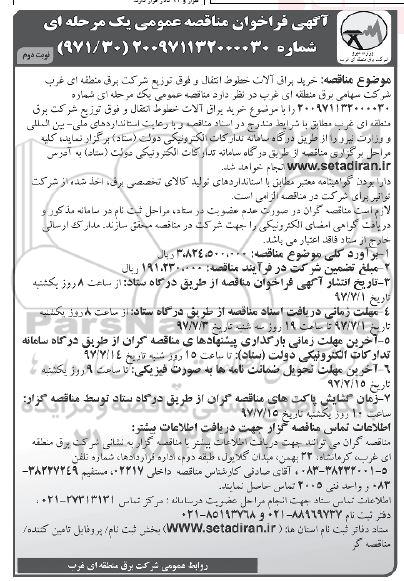 آگهی فراخوان مناقصه عمومی یک مرحله ای
شماره ۲۰۰۹۷۱۱۳۲۰۰۰۰۳۰ (۹۷۱/۳۰)
نوبت دوم
موضوع مناقصه: خرید یراق آلات خطوط انتقال و فوق توزیع شرکت برق منطقه ای غرب
شرکت سهامی برق منطقه ای غرب در نظر دارد مناقصه عمومی یک مرحله ای شماره
۲۰۰۹۷۱۱۳۲۰۰۰۰۳۰ را با موضوع خرید یراق آلات خطوط انتقال و فوق توزیع شرکت برق
منطقه ای غرب مطابق با شرایط مندرج در اسناد مناقصه و با رعایت استانداردهای ملی- بین المللی
و وزارت نیرو را از طریق درگاه سامانه تدارکات الکترونیکی دولت (ستاد) برگزار نماید، کلیه
مراحل برگزاری مناقصه از طریق درگاه سامانه تدارکات الکترونیکی دولت (ستاد) به آدرس
www.setadiran.ir انجام خواهد شد.
دارا بودن گواهینامه معتبر مطابق با استانداردهای تولید کالای تخصصی برق، اخذ شده از شرکت
توانیر برای شرکت در مناقصه الزامی است.
لازم است مناقصه گران در صورت عدم عضویت در ستاد، مراحل ثبت نام در سامانه مذکور و
دریافت گواهی امضای الکترونیکی را جهت شرکت در مناقصه محقق سازند. مدارک ارسالی
خارج از ستاد فاقد اعتبار می باشد.
۱-برآورد کلی موضوع مناقصه: ۳،۸۲۴،۵۰۰،۰۰۰ ریال
۲-مبلغ تضمین شرکت در فرآیند مناقصه: ۱۹۱،۲۳۰،۰۰۰ ریال
۳-تاریخ انتشار آگهی فراخوان مناقصه از طریق درگاه ستاد: از ساعت ۸ روز یکشنبه
تاریخ ۹۷/۷/۱
۴- مهلت زمانی دریافت اسناد مناقصه از طریق درگاه ستاد: از ساعت ۸ روز یکشنبه
تاریخ ۹۷/۷/۱ تا ساعت ۱۹ روز سه شنبه تاریخ ۹۷/۷/۳
۵-آخرین مهلت زمانی بارگذاری پیشنهادها ی مناقصه گران از طریق درگاه سامانه
تدارکات الکترونیکی دولت (ستاد): تا ساعت ۱۵ روز شنبه تاریخ ۹۷/۷/۱۴
۶-آخرین مهلت تحویل ضمانت نامه ها به صورت فیزیکی: تا ساعت ۹ روز یکشنبه
تاریخ ۹۷/۷/۱۵
۷-زمان گشایش پاکت های مناقصه گران از طریق درگاه ستاد توسط مناقصه گزار:
ساعت ۱۰ روز یکشنبه تاریخ ۹۷/۷/۱۵
اطلاعات تماس مناقصه گزار جهت دریافت اطلاعات بیشتر:
مناقصه گران می توانند جهت دریافت اطلاعات بیشتر با مناقصه گزار به نشانی شرکت برق منطقه
ای غرب، کرمانشاه، ۲۲ بهمن، میدان گلایول، طبقه دوم، اداره قراردادها، شماره تلفن
۰۸۳-۳۸۲۳۳۰۰۱-۵ ، آقای صادقی کارشناس مناقصه داخلی ۰۲۲۱۷، مستقیم ۳۸۲۲۷۲۴۹-
۰۸۳ و واحد فنی ۲۰۰۵ تماس حاصل نمایند.
اطلاعات تماس ستاد جهت انجام مراحل عضویت درسامانه : مرکز تماس ۲۷۳۱۳۱۳۱-۰۲۱،
دفتر ثبت نام ۸۸۹۶۹۷۳۷-۰۲۱ و ۸۵۱۹۳۷۶۸-۰۲۱
ستاد دفاتر ثبت نام استان ها: (www.setadiran.ir) بخش ثبت نام/ پروفایل تامین کننده/
مناقصه گر
روابط عمومی شرکت برق منطقه ای غرب